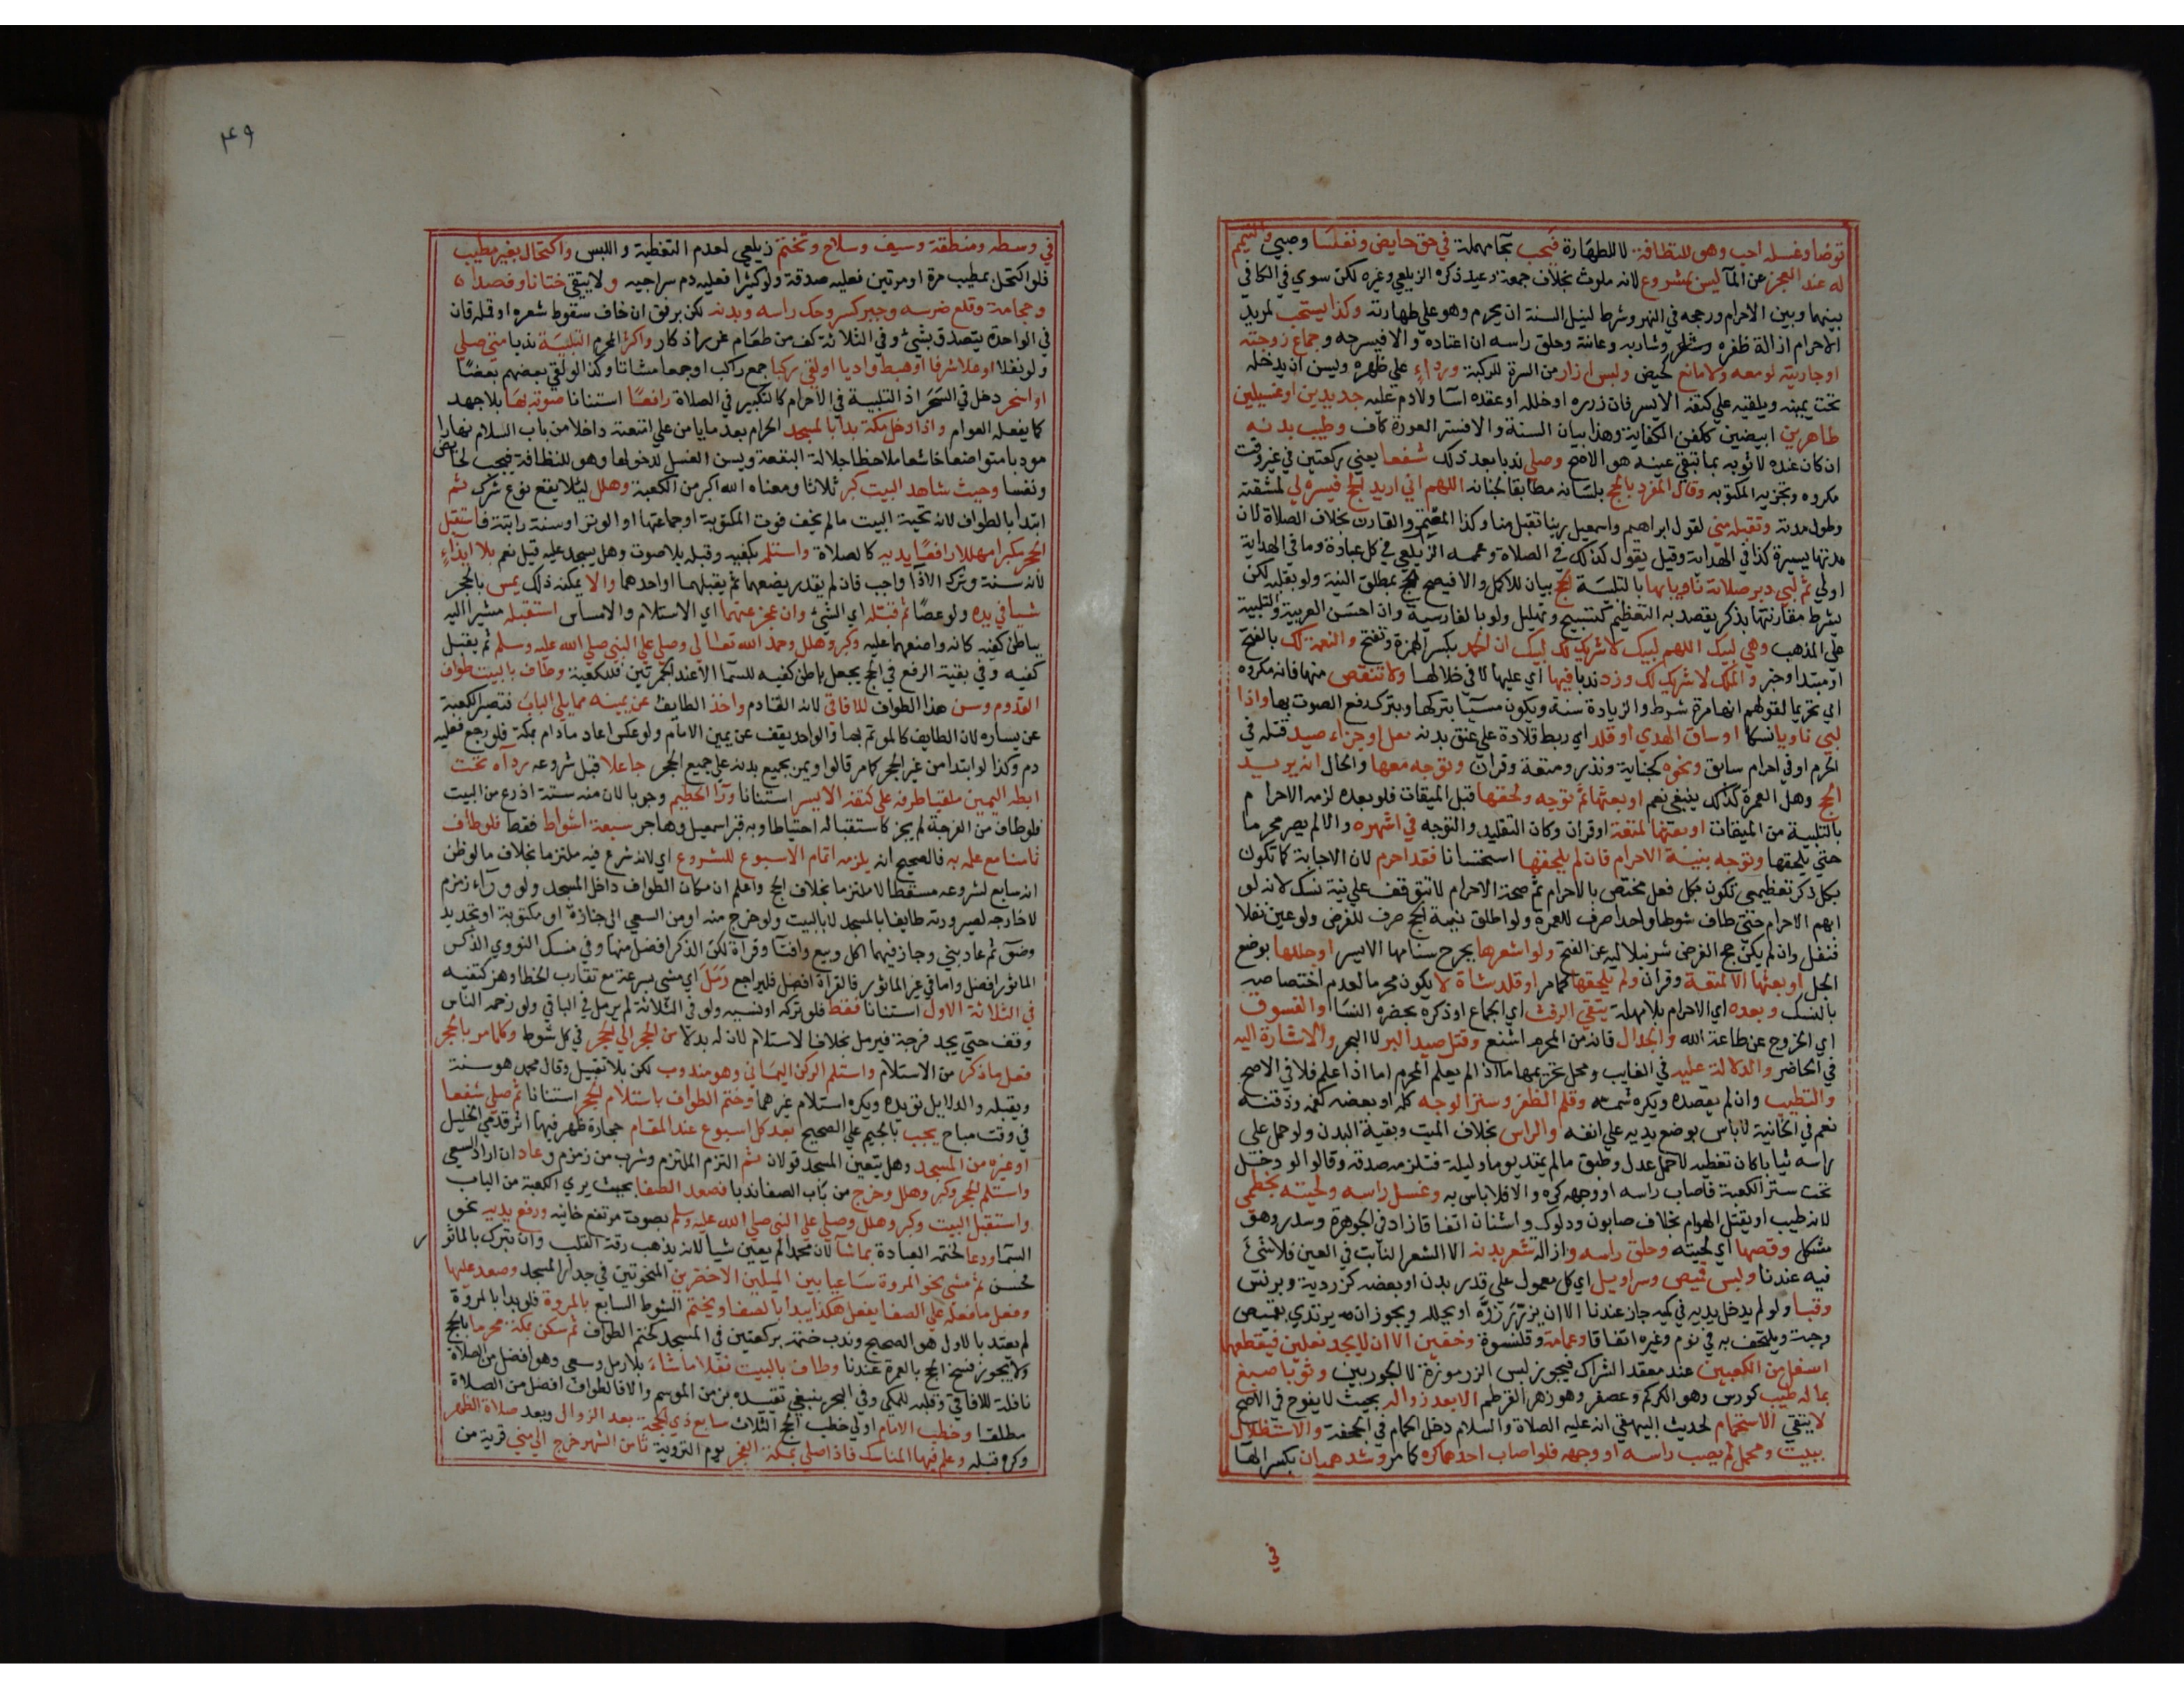 توضا وغسله احب وهو للنظافة لا للطهارة فيجب بحا مهملة في حق حايض ونفسا وصبي والتيمم
له عند العجز عن الما ليس بمشروع لانه ملوث بخلاف جمعة وعيد ذكره الزيلعي وغيره لكن سوي في الكافي
بينهما وبين الاحرام ورجحه في النهر وشرط لنيل السنة ان يحرم وهو علي طهارته وكذا يستحب لمريد
الاحرام ازالة ظفره وشاربه وعانته وحلق راسه ان اعتاده والا فيسرحه وجماع زوجته
او جاريته لو معه ولا مانع كحيض ولبس ازار من السرة للركبة ورداء علي ظهره ويسن ان يدخله
تحت يمينه ويلقيه علي كتفه الايسر فان زرره او خلله او عقده اسا ولا دم عليه جديدين او غسيلين
طاهرين ابيضين ككفن الكفاية وهذا بيان السنة والا فستر العورة كاف وطيب بدنه
ان كان عنده لا ثوبه بما تبقي عينه هو الاصح وصلي ندبا بعد ذلك شفعا يعني ركعتين في غير وقت
مكروه وتجزيه المكتوبة وقال المفرد بالحج بلسانه مطابقا لجنانه اللهم اني اريد الحج فيسره لي لمشقته
وطول مدته وتقبله مني لقول ابراهيم واسمعيل ربنا تقبل منا وكذا المعتمر والقارن بخلاف الصلاة لان
مدتها يسيرة كذا في الهداية وقيل يقول كذلك في الصلاة وعممه الزيلعي في كل عبادة وما في الهداية
اولي ثم لبي دبر صلاته ناويا بها بالتلبية الحج بيان للاكمل والا فيصح الحج بمطلق النية ولو بقلبه لكن
بشرط مقارنتها بذكر يقصد به التعظيم كتسبيح وتهليل ولو بالفارسية وان احسن العربية والتلبية
علي المذهب وهي لبيك اللهم لبيك لا شريك لك لبيك ان الحمد بكسر الهمزة وتفتح والنعمة لك بالفتح
او مبتدا وخبر والملك لا شريك لك وزد ندبا فيها اي عليها لا في خلالها ولا تنقص منها فانه مكروه
اي تحريما لقولهم انها مرة شرط والزيادة سنة ويكون مسيا بتركها وبترك رفع الصوت بها واذا
لبي ناويا نسكا او ساق الهدي او قلد اي ربط قلادة علي عنق بدنه نفل او جزاء صيد قتله في
الحرم او في احرام سابق ونحوه كجناية ونذر ومتعة وقران وتوجه معها والحال انه يريد
الحج وهل العمرة كذلك ينبغي نعم او بعثها ثم توجه ولحقها قبل الميقات فلو بعده لزمه الاحرام
بالتلبية من الميقات او بعثها لمتعة او قران وكان التقليد والتوجه في اشهره والا لم يصر محرما
حتي يلحقها وتوجه بنية الاحرام فان لم يلحقها استحسانا فقد احرم لان الاجابة كما تكون
بكل ذكر تعظيمي تكون بكل فعل مختص بالاحرام ثم صحة الاحرام لا تتوقف علي نية نسك لانه لو
ابهم الاحرام حتي طاف شوطا واحدا صرف للعمرة ولو اطلق نية الحج صرف للفرض ولو عين نفلا
فنفل وان لم يكن حج الفرض شرنبلاليه عن الفتح ولو اشعرها بجرح سنامها الايسر او جللها بوضع
الجل او بعثها الا لمتعة وقران ولم يلحقها كما مر او قلد شاة لا يكون محرما لعدم اختصاصه
بالنسك وبعده اي الاحرام بلا مهلة يتقي الرفث اي الجماع او ذكره بحضرة النسا والفسوق
اي الخروج عن طاعة الله والجدال فانه من المحرم اشنع وقتل صيد البر لا البحر والاشارة اليه
في الحاضر والدلالة عليه في الغايب ومحل تحريمهما ما اذا لم يعلم المحرم اما اذا علم فلا في الاصح
والتطيب وان لم يقصده ويكره شمه وقلم الظفر وستر الوجه كله او بعضه كفمه وذقنه
نعم في الخانية لا باس بوضع يديه علي انفه والراس بخلاف الميت وبقية البدن ولو حمل علي
راسه ثيابا كان تغطيه لا حمل عدل وطبق ما لم يمتد يوما وليلة فتلزمه صدقة وقالوا لو دخل
تحت ستر الكعبة فاصاب راسه او وجهه كره والا فلا باس به وغسل راسه ولحيته بخطمي
لانه طيب او يقتل الهوام بخلاف صابون ودلوك واشنان اتفاقا زاد في الجوهرة وسدر وهو
مشكل وقصها اي لحيته وحلق راسه وازالة شعر بدنه الا الشعر النابت في العين فلا شيء
فيه عندنا ولبس قميص وسراويل اي كل معمول علي قدر بدن او بعضه كزردية وبرنس
وقبا ولو لم يدخل يديه في كميه جاز عندنا الا ان يزرره او يخلله ويجوز ان يرتدي بقميص
وجبة ويلتحف به في نوم وغيره اتفاقا وعمامة وقلنسوة وخفين الا ان لا يجد نعلين فيقطعهما
اسفل من الكعبين عند معقد الشراك فيجوز لبس الزرموزة لا الجوربين وثوبا صبغ
بما له طيب كورس وهو الكركم وعصفر وهو زهر القرطم الا بعد زواله بحيث لا يفوح في الاصح
لا يتقي الاستحمام لحديث البيهقي انه عليه الصلاة والسلام دخل الحمام في الجحفة والاستظلال
ببيت ومحمل لم يصب راسه او وجهه فلو اصاب احدهما كره كما مر وشد هميان بكسر الها
في
٤٩
في وسطه ومنطقة وسيف وسلاح وتختم زيلعي لعدم التغطية واللبس واكتحال بغير مطيب
فلو اكتحل بمطيب مرة او مرتين فعليه صدقة ولو كثيرا فعليه دم سراجيه ولا يتقي ختانا وفصدا
وحجامة وقلع ضرسه وجبر كسر وحك راسه وبدنه لكن برفق ان خاف سقوط شعره او قمله فان
في الواحدة يتصدق بشيء وفي الثلاثة كف من طعام غرر اذكار واكثر المحرم التلبية ندبا متي صلي
ولو نفلا او علا شرفا او هبط واديا او لقي ركبا جمع راكب او جمعا مشاتا وكذا لو لقي بعضهم بعضا
او اسحر دخل في السحر اذ التلبية في الاحرام كالتكبير في الصلاة رافعا استنانا صوته بها بلا جهد
كما يفعله العوام واذا دخل مكة بدا بالمسجد الحرام بعد ما يامن علي امتعته داخلا من باب السلام نهارا
مودبا متواضعا خاشعا ملاحظا جلالة البقعة ويسن الغسل لدخولها وهو للنظافة فيجب لحايض
ونفسا وحيث شاهد البيت كبر ثلاثا ومعناه الله اكبر من الكعبة وهلل ليلا يقع نوع شرك ثم
ابتدا بالطواف لانه تحية البيت ما لم يخف فوت المكتوبة او جماعتها او الوتر او سنة راتبة فاستقبل
الحجر مكبرا مهللا رافعا يديه كالصلاة واستلمه بكفيه وقبله بلا صوت وهل يسجد عليه قيل نعم بلا ايذاء
لانه سنة وترك الاذا واجب فان لم يقدر يضعهما ثم يقبلهما او احدهما والا يمكنه ذلك يمس بالحجر
شيا في يده ولو عصا ثم قبله اي الشي وان عجز عنهما اي الاستلام والامساس استقبله مشيرا اليه
بباطن كفيه كانه واضعهما عليه وكبر وهلل وحمد الله تعالي وصلي علي النبي صلي الله عليه وسلم ثم يقبل
كفيه وفي بقية الرفع في الحج يجعل باطن كفيه للسما الا عند الجمرتين فللكعبة وطاف بالبيت طواف
القدوم وسن هذا الطواف للافاقي لانه القادم واخذ الطايف عن يمينه مما يلي الباب فتصير الكعبة
عن يساره لان الطايف كالموتم بها والواحد يقف عن يمين الامام ولو عكس اعاد ما دام بمكة فلو رجع فعليه
دم وكذا لو ابتدا من غير الحجر كما مر قالوا ويمر بجميع بدنه علي جميع الحجر جاعلا قبل شروعه رداه تحت
ابطه اليمين ملقيا طرفه علي كتفه الايسر استنانا ورا الحطيم وجوبا لان منه ستة اذرع من البيت
فلو طاف من الفرجة لم يجز كاستقباله احتياطا وبه قبر اسمعيل وهاجر سبعة اشواط فقط فلو طاف
ثامنا مع علمه به فالصحيح انه يلزمه اتمام الاسبوع للشروع اي لانه شرع فيه ملتزما بخلاف ما لو ظن
انه سابع لشروعه مسقطا لا ملتزما بخلاف الحج واعلم ان مكان الطواف داخل المسجد ولو وراء زمزم
لا خارجه لصيرورته طايفا بالمسجد لا بالبيت ولو خرج منه او من السعي الي جنازة او مكتوبة او تجديد
وضو ثم عاد بني وجاز فيهما اكل وبيع وافتا وقراة لكن الذكر افضل منها وفي منسك النووي الذكر
الماثور افضل واما في غير الماثور فالقراة افضل فليراجع رمل اي مشي بسرعة مع تقارب الخطا وهز كتفيه
في الثلاثة الاول استنانا فقط فلو تركه او نسيه ولو في الثلاثة لم يرمل في الباقي ولو زحمه الناس
وقف حتي يجد فرجة فيرمل بخلاف الاستلام لان له بدلا من الحجر الي الحجر في كل شوط وكلما مر بالحجر
فعل ما ذكر من الاستلام واستلم الركن اليماني وهو مندوب لكن بلا تقبيل وقال محمد هو سنة
ويقبله والدلايل تويده ويكره استلام غيرهما وختم الطواف باستلام الحجر استنانا ثم صلي شفعا
في وقت مباح يجب بالجيم علي الصحيح بعد كل اسبوع عند المقام حجارة ظهر فيها اثر قدمي الخليل
او غيره من المسجد وهل يتعين المسجد قولان ثم التزم الملتزم وشرب من زمزم وعاد ان اراد السعي
واستلم الحجر وكبر وهلل وخرج من باب الصفا ندبا فصعد الصفا بحيث يري الكعبة من الباب
واستقبل البيت وكبر وهلل وصلي علي النبي صلي الله عليه وسلم بصوت مرتفع خانيه ورفع يديه نحو
السما ودعا لختمه العبادة بما شا لان محمدا لم يعين شيا لانه يذهب رقة القلب وان تبرك بالماثور
فحسن ثم مشي نحو المروة ساعيا بين الميلين الاخضرين المنحوتين في جدار المسجد وصعد عليها
وفعل ما فعله علي الصفا يفعل هكذا يبدا بالصفا ويختم الشوط السابع بالمروة فلو بدا بالمروة
لم يعتد بالاول هو الصحيح وندب ختمه بركعتين في المسجد كختم الطواف ثم سكن بمكة محرما بالحج
ولا يجوز فسخ الحج بالعمرة عندنا وطاف بالبيت نفلا ماشيا بلا رمل وسعي وهو افضل من الصلاة
نافلة للافاقي وقلبه للمكي وفي البحر ينبغي تقييده بزمن الموسم والا فالطواف افضل من الصلاة
مطلقا وخطب الامام اولي خطب الحج الثلاث سابع ذي الحجة بعد الزوال وبعد صلاة الظهر
وكره قبله وعلم فيها المناسك فاذا صلي بمكة الفجر يوم التروية ثامن الشهر خرج الي مني قرية من